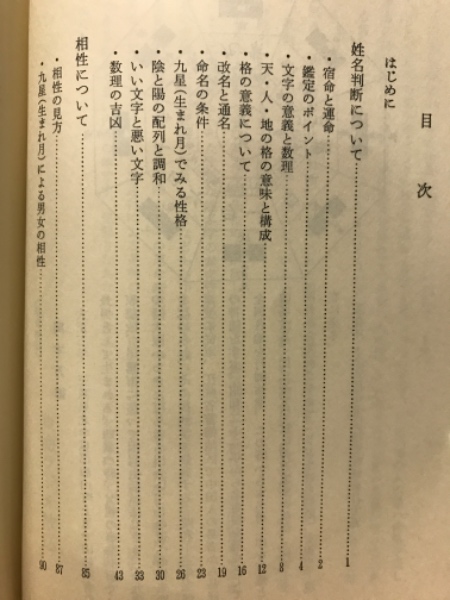 目次
はじめに
姓名判断について 1
・宿命と運命 2
・鑑定のポイント 4
・文字の意義と数理 8
・天・人・地の格の意味と構成 12
・格の意義について 16
・改名と通名 19
・命名の条件 23
・九星(生まれ月)でみる性格 26
・陰と陽の配列と調和 30
・いい文字と悪い文字 33
・数理の吉凶 43
相性について 85
・相性の見方 87
・九星(生まれ月)による男女の相性 90